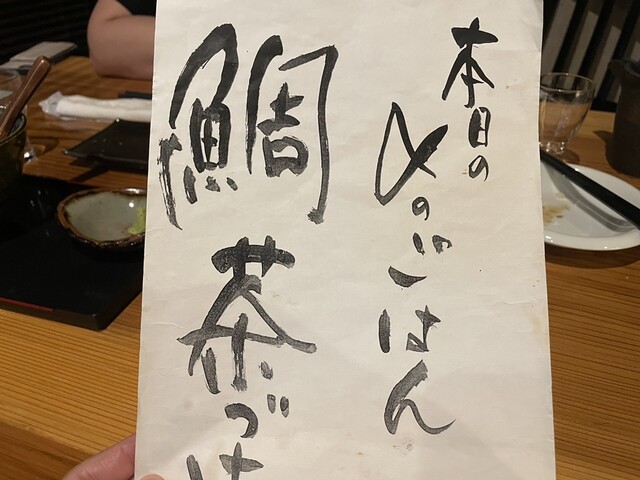 本日の
〆のごはん
鯛茶づけ